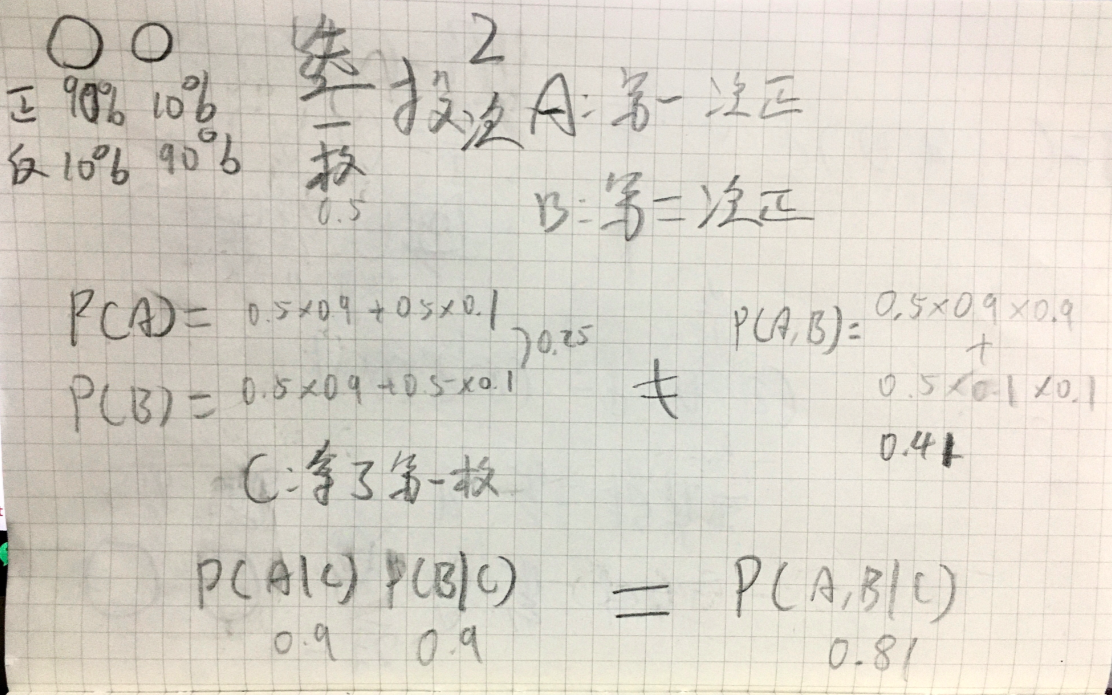 正 90% 10%
反 10% 90%
拿一枚
0.5
投2次
A:第一次正
B:第二次正
P(A)= 0.5×0.9+0.5×0.1
P(B)= 0.5×0.9+0.5×0.1
}0.25
≠
P(A,B)= 0.5×0.9×0.9
+
0.5×0.1×0.1
0.41
C:拿了第一枚
P(A|C) P(B|C) = P(A,B|C)
0.9 0.9 0.81